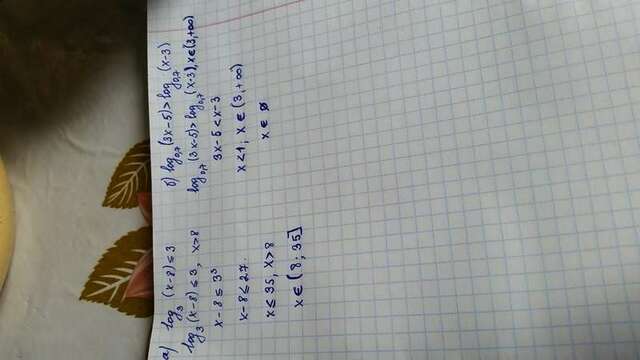 а) log₃ (x-8) ≤ 3
log₃ (x-8) ≤ 3, x>8
x-8 ≤ 3³
x-8 ≤ 27.
x ≤ 35, x>8
x ∈ (8; 35]
б) log₀,₇ (3x-5) > log₀,₇ (x-3)
log₀,₇ (3x-5) > log₀,₇ (x-3), x ∈ (3, +∞)
3x-5 < x-3
x < 1, x ∈ (3, +∞)
x ∈ ∅